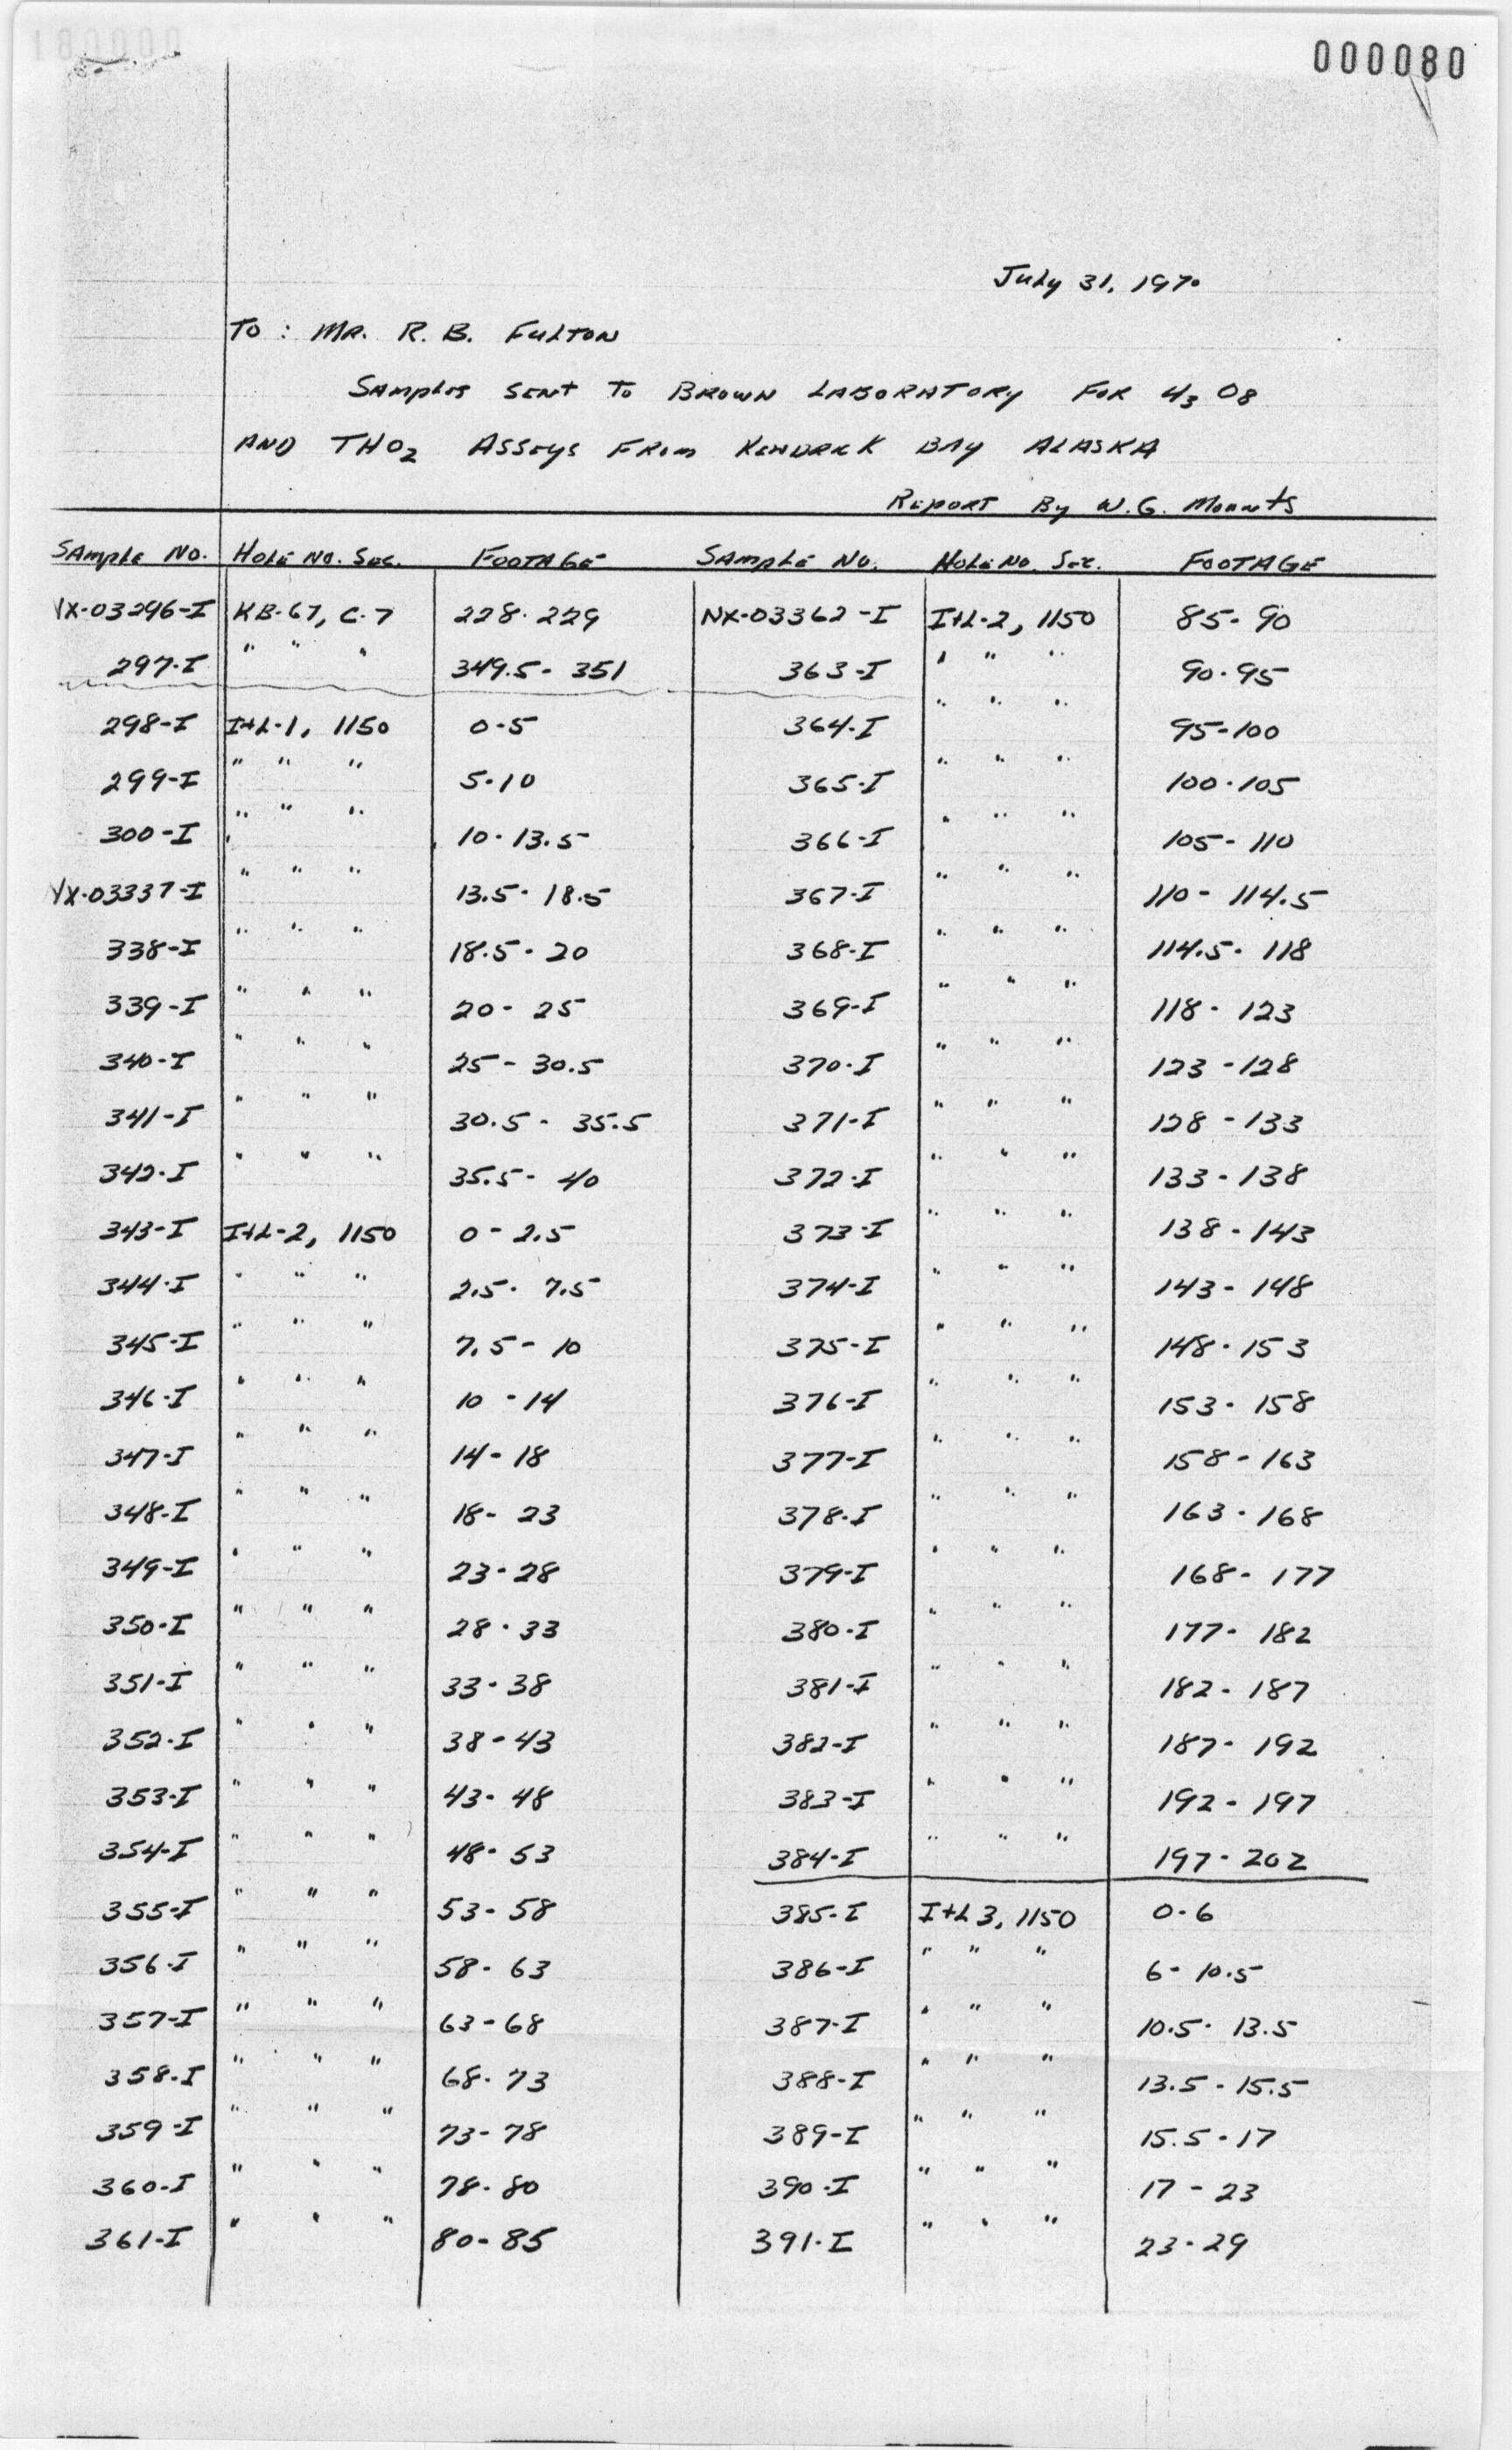 000080
July 31, 1970
To : Mr. R. B. Fulton
Samples sent to Brown Laboratory for U3 O8
and ThO2 Assays from Kendrick Bay Alaska
Report By W. G. Mounts
Sample No. Hole No. Sec. Footage Sample No. Hole No. Sec. Footage
NX-03296-I KB-67, C-7 228-229 NX-03362-I I+L-2, 1150 85-90
297-I " " " 349.5-351 363-I " " " 90-95
298-I I+L-1, 1150 0-5 364-I " " " 95-100
299-I " " " 5-10 365-I " " " 100-105
300-I " " " 10-13.5 366-I " " " 105-110
NX-03337-I " " " 13.5-18.5 367-I " " " 110-114.5
338-I " " " 18.5-20 368-I " " " 114.5-118
339-I " " " 20-25 369-I " " " 118-123
340-I " " " 25-30.5 370-I " " " 123-128
341-I " " " 30.5-35.5 371-I " " " 128-133
342-I " " " 35.5-40 372-I " " " 133-138
343-I I+L-2, 1150 0-2.5 373-I " " " 138-143
344-I " " " 2.5-7.5 374-I " " " 143-148
345-I " " " 7.5-10 375-I " " " 148-153
346-I " " " 10-14 376-I " " " 153-158
347-I " " " 14-18 377-I " " " 158-163
348-I " " " 18-23 378-I " " " 163-168
349-I " " " 23-28 379-I " " " 168-177
350-I " " " 28-33 380-I " " " 177-182
351-I " " " 33-38 381-I " " " 182-187
352-I " " " 38-43 382-I " " " 187-192
353-I " " " 43-48 383-I " " " 192-197
354-I " " " 48-53 384-I " " " 197-202
355-I " " " 53-58 385-I I+L 3, 1150 0-6
356-I " " " 58-63 386-I " " " 6-10.5
357-I " " " 63-68 387-I " " " 10.5-13.5
358-I " " " 68-73 388-I " " " 13.5-15.5
359-I " " " 73-78 389-I " " " 15.5-17
360-I " " " 78-80 390-I " " " 17-23
361-I " " " 80-85 391-I " " " 23-29